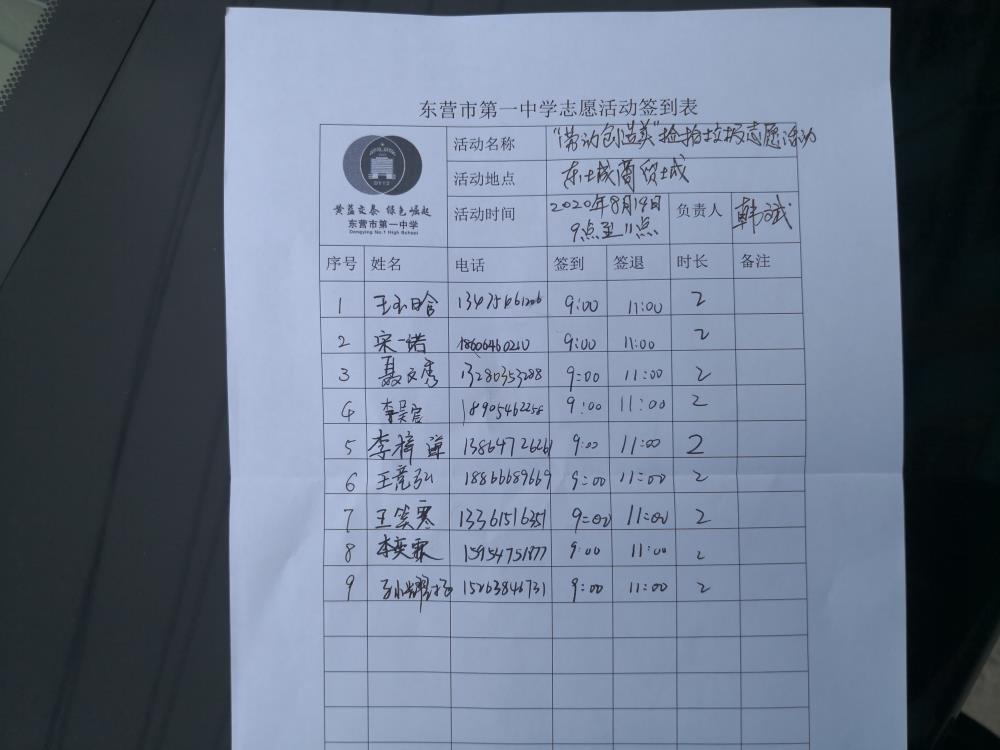 东营市第一中学志愿活动签到表
活动名称 "劳动创造美"捡拾垃圾志愿活动
活动地点 东城商贸城
黄蓝交泰 绿色崛起
东营市第一中学
Dongying No.1 High School
活动时间 2020年8月19日 9点至11点 负责人 韩斌
序号 姓名 电话 签到 签退 时长 备注
1 9:00 11:00 2
2 宋一诺 18606460210 9:00 11:00 2
3 聂文秀 13280353288 9:00 11:00 2
4 李昊宸 18905462258 9:00 11:00 2
5 李梓 13864726261 9:00 11:00 2
6 王竞弘 18866689669 9:00 11:00 2
7 王笑寒 13361516351 9:00 11:00 2
8 李奕霖 15954751877 9:00 11:00 2
9 15263846731 9:00 11:00 2